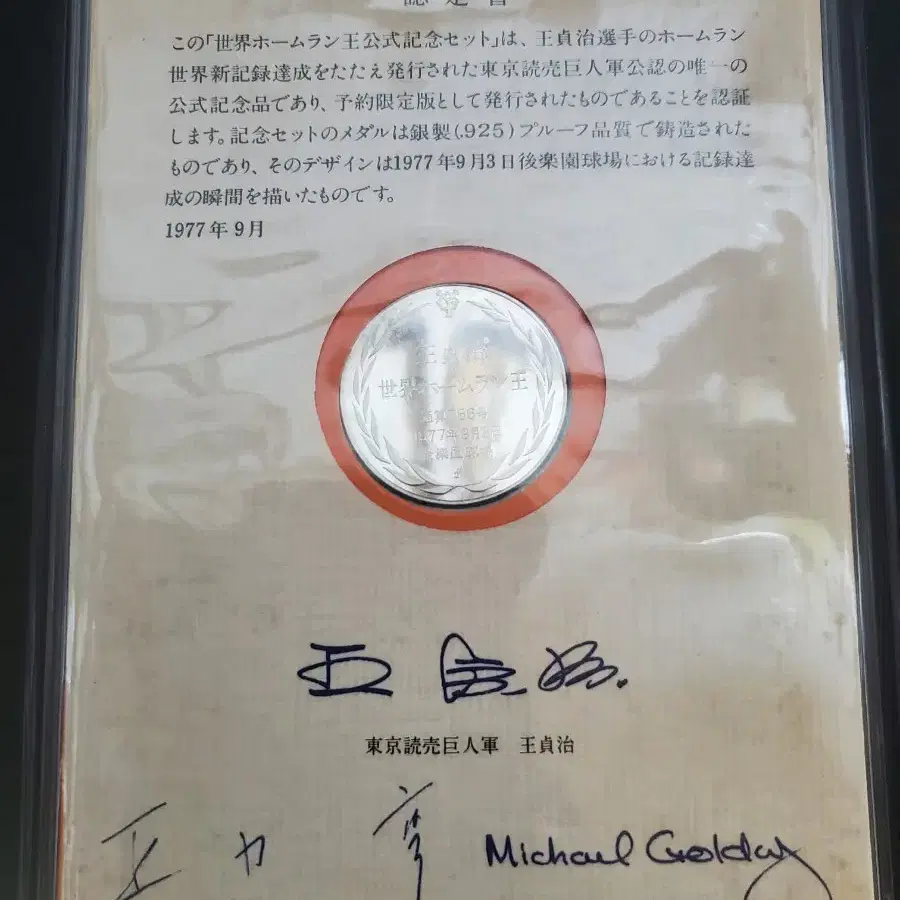 認定書
この「世界ホームラン王公式記念セット」は、王貞治選手のホームラン
世界新記録達成をたたえ発行された東京読売巨人軍公認の唯一の
公式記念品であり、予約限定版として発行されたものであることを認証
します。記念セットのメダルは銀製(.925)プルーフ品質で鋳造された
ものであり、そのデザインは1977年9月3日後楽園球場における記録達
成の瞬間を描いたものです。
1977年9月
王貞治
世界ホームラン王
通算756号
1977年9月3日
後楽園球場
王貞治
東京読売巨人軍 王貞治
Michael Golday